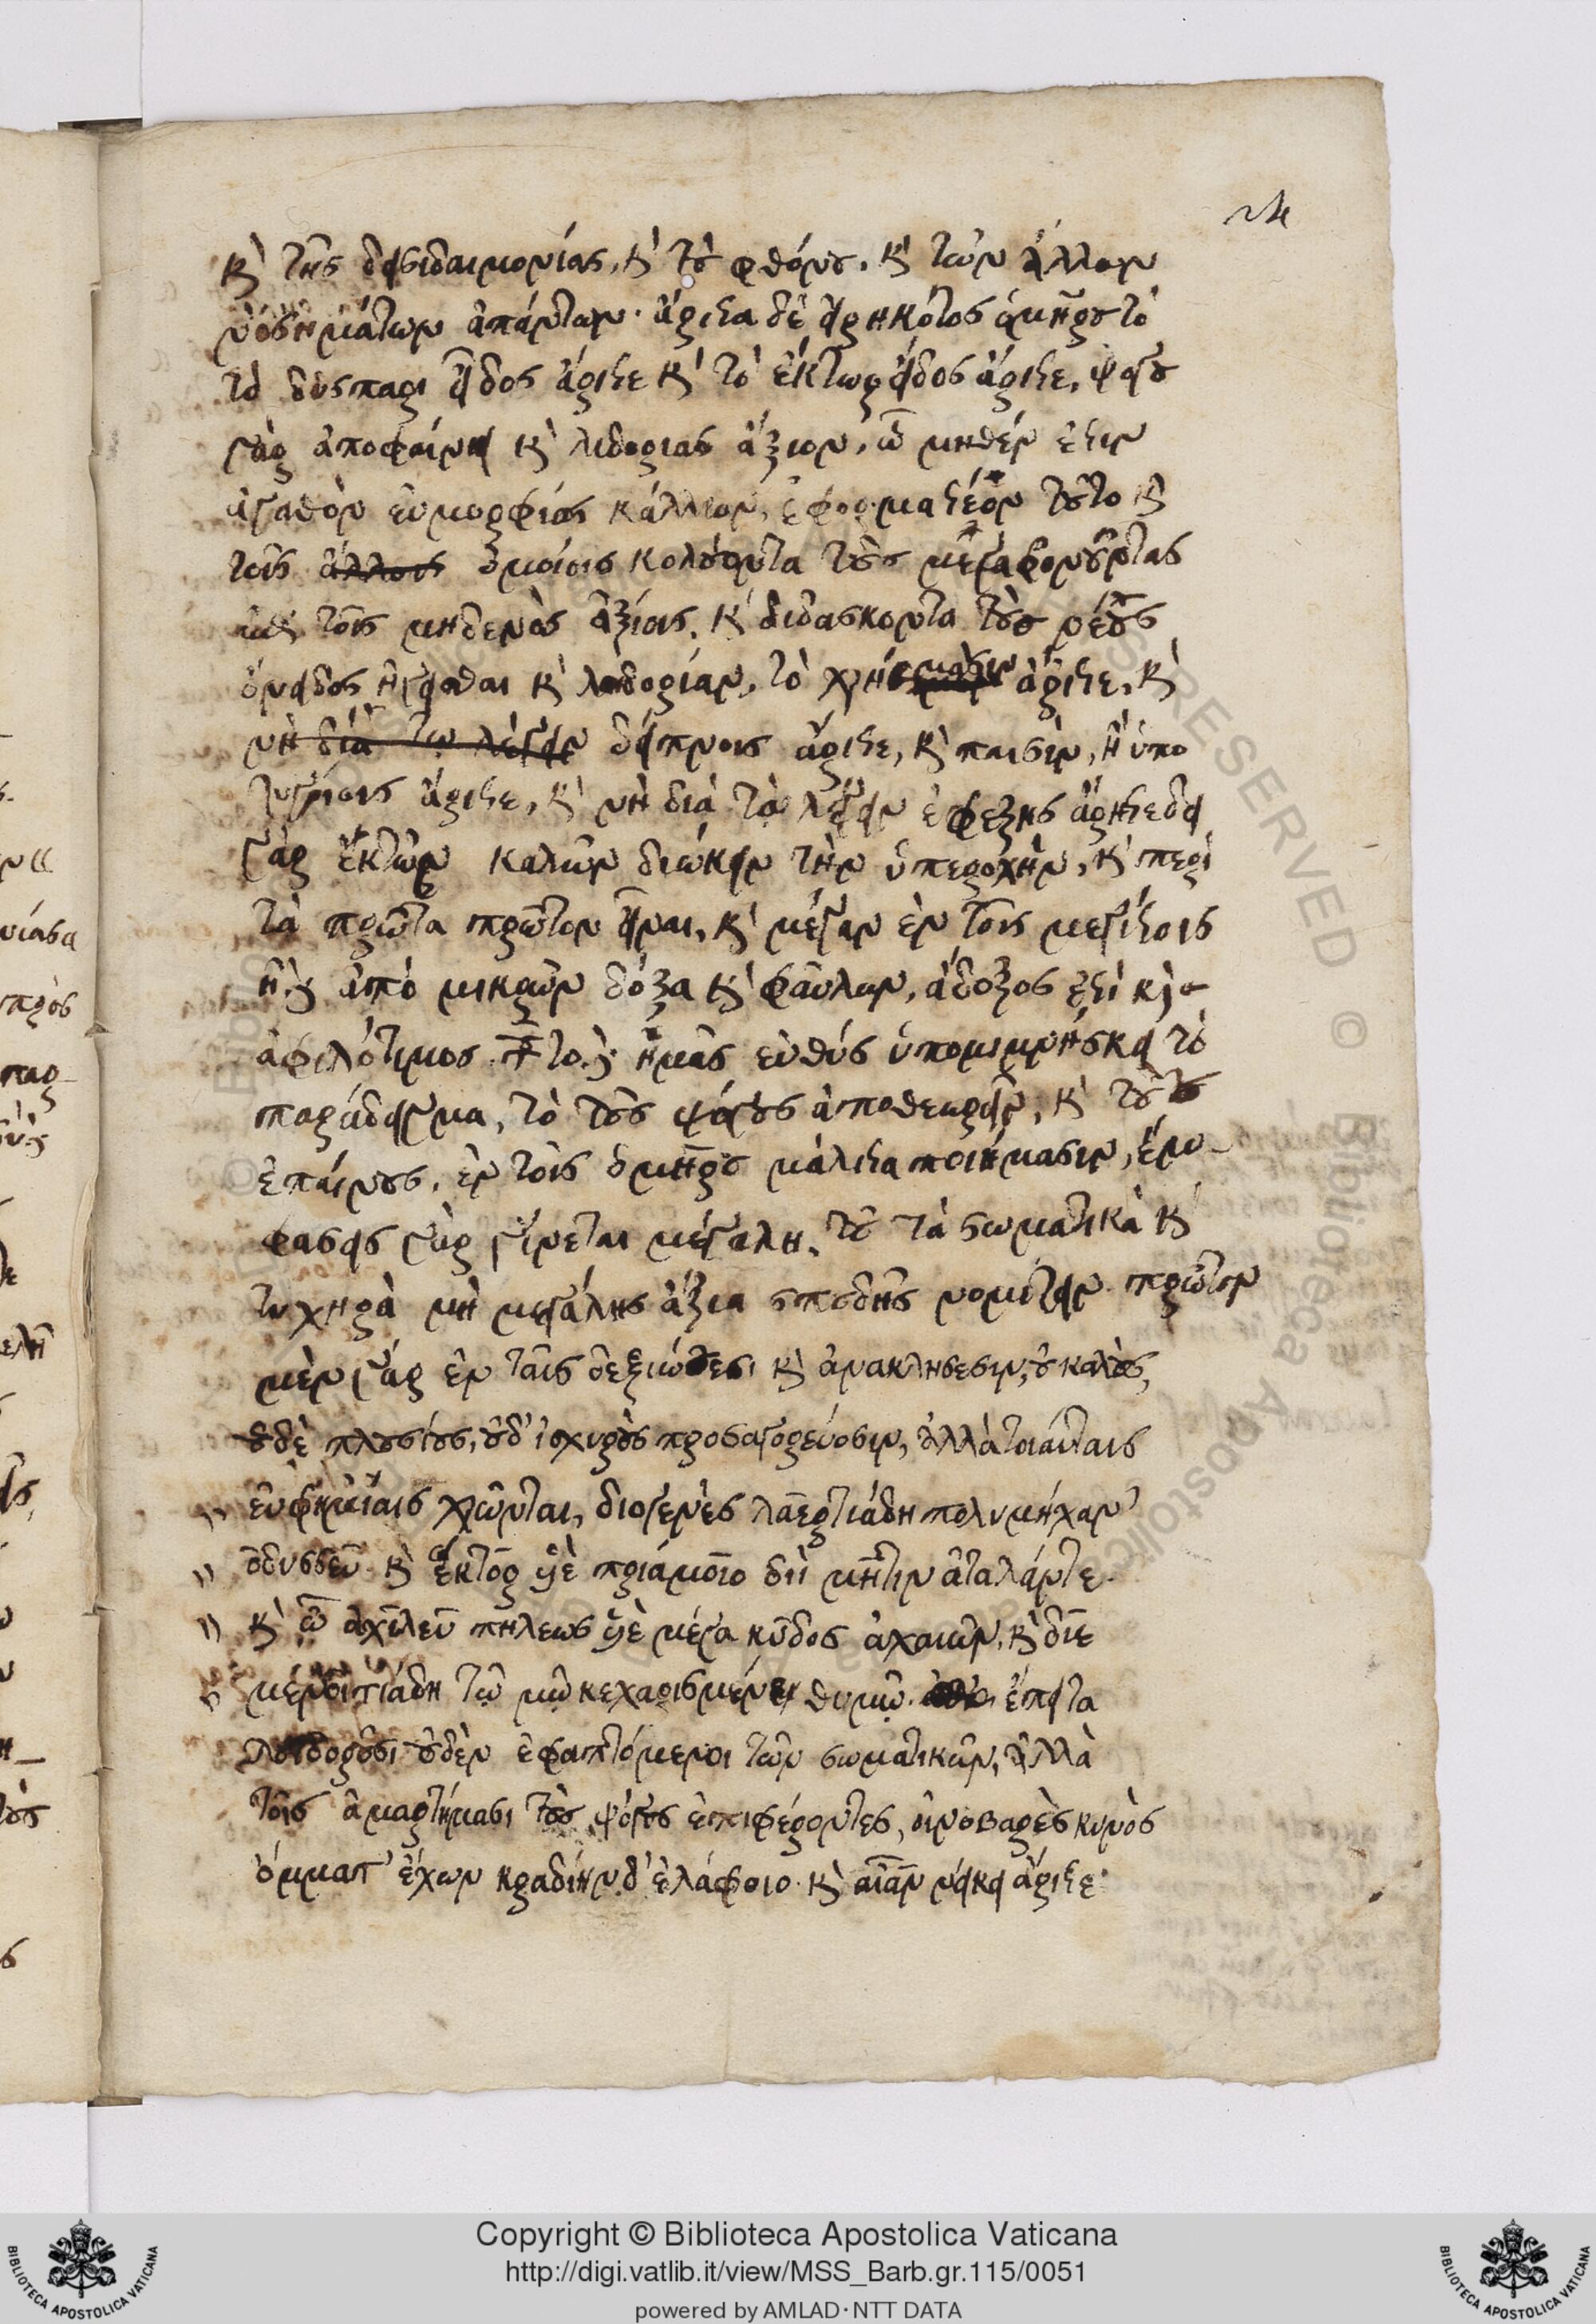 24
κὶ τῆς δεισιδαιμονίας, κὶ τοῦ φθόνου, κὶ τῶν ἄλλων
νοσημάτων ἁπάντων· ἄριστα δὲ εἰρηκότος ὁμήρου τὸ
τὸ δύσπαρι εἶδος ἄριστε κὶ τὸ ἕκτωρ εἶδος ἄριστε, ψόγου
γὰρ ἀποφαίνει κὶ λιδορίας ἄξιον, ᾧ μηθέν ἐστιν
ἀγαθὸν εὐμορφίας κάλλιον, ἐφαρμοστέον τοῦτο κὶ
τοῖς ὁμοίοις κολούοντα τοὺς μεγαφρονοῦντας
ἐπὶ τοῖς μηδενὸς ἀξίοις, κὶ διδάσκοντα τοὺς νέους
ὄνειδος ἡγεῖσθαι κὶ λοιδορίαν, τὸ χρήμασιν ἄριστε, κὶ
δείπνοις ἄριστε, κὶ παισὶν, ἢ ὑπο
ζυγίοις ἄριστε, κὶ νὴ δία τὸ λέγειν ἐφεξῆς ἄριστε δεῖ
γὰρ ἐκ τῶν καλῶν διώκειν τὴν ὑπεροχὴν, κὶ περὶ
τὰ πρῶτα πρῶτον εἶναι, κὶ μέγαν ἐν τοῖς μεγίστοις
ἡ δ' ἀπὸ μικρῶν δόξα κὶ φαύλων, ἄδοξος ἐστὶ κὶ
ἀφιλότιμος τοῦτο δ' ἡμᾶς εὐθύς ὑπομιμνήσκει τὸ
παράδειγμα, τὸ τοὺς ψόγους ἀποθεωρεῖν, κὶ τοὺς
ἐπαίνους, ἐν τοῖς ὁμήρου μάλιστα ποιήμασιν, ἔμ-
φασις γὰρ γίνεται μεγάλη, τοῦ τὰ σωματικὰ κὶ
τυχηρὰ μὴ μεγάλης ἄξια σπουδῆς νομίζειν. πρῶτον
μὲν γὰρ ἐν ταῖς δεξιώσεσι κὶ ἀνακλήσεσιν, οὐ καλοὺς,
οὐδὲ πλουσίους, οὐδ' ἰσχυροὺς προσαγορεύουσιν, ἀλλὰ τοιαύταις
〃 εὐφημίαις χρῶνται, διογενὲς λαερτιάδη πολυμήχαν'
〃 ὀδυσσεῦ κὶ ἕκτορ υἱὲ πριάμοιο διὶ μῆτιν ἀτάλαντε.
〃 κὶ ὦ ἀχιλεῦ πηλέως υἱὲ μέγα κῦδος ἀχαιῶν, κὶ δῖε
〃 μενοιτιάδη τῷ μῷ κεχαρισμένε θυμῷ. ἔπειτα
λοιδοροῦσι οὐδὲν ἐφαπτόμενοι τῶν σωματικῶν, ἀλλὰ
τοῖς ἁμαρτήμασι τοὺς ψόγους ἐπιφέροντες, οἰνοβαρὲς κυνὸς
ὄμματ' ἔχων κραδίην δ' ἐλάφοιο. κὶ αἶαν νείκει ἄριστε·
Copyright © Biblioteca Apostolica Vaticana
http://digi.vatlib.it/view/MSS_Barb.gr.115/0051
powered by AMLAD·NTT DATA